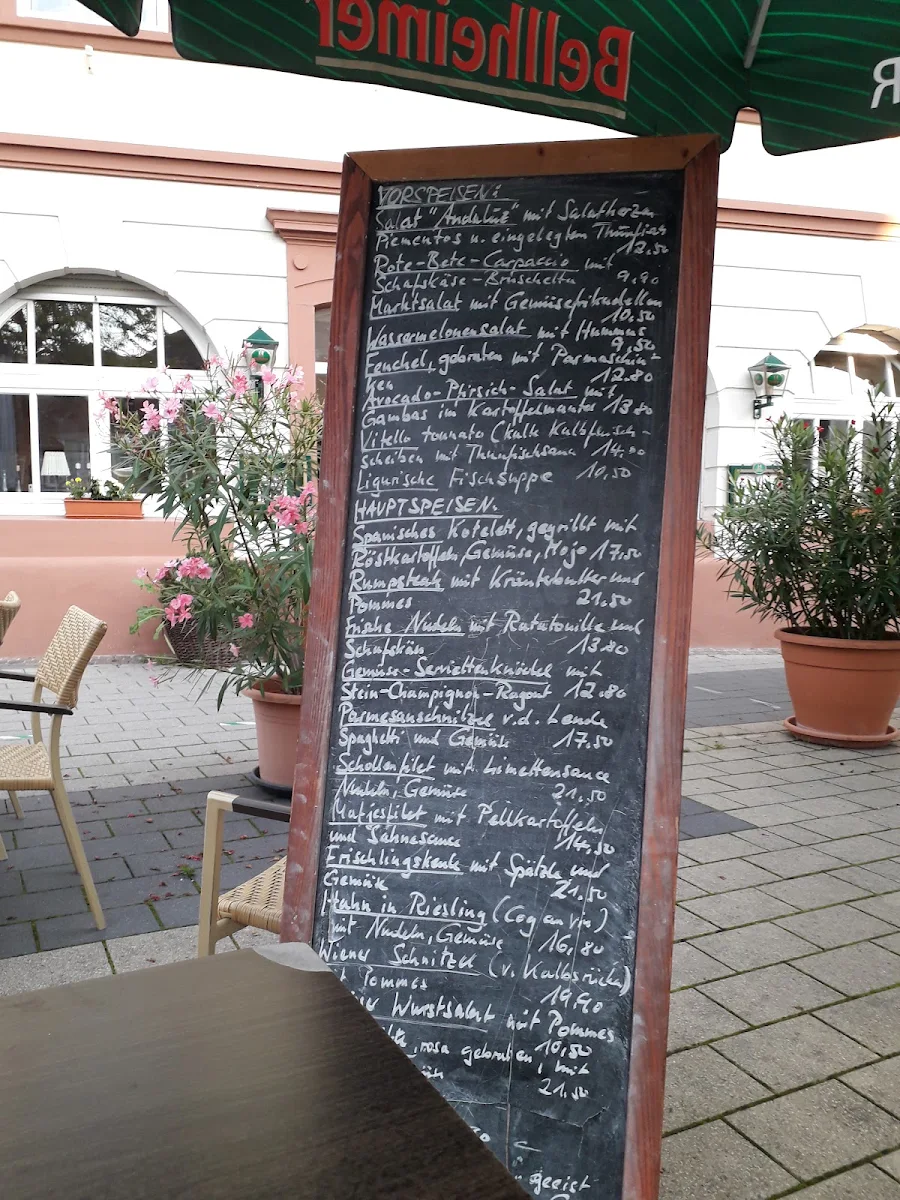 Bellheimer
R
VORSPEISEN:
Salat "Andaluz" mit Salatherzen
Piementos u. eingelegten Thunfisch
12,50
Rote-Bete-Carpaccio mit
Schafskäse-Bruschetta 9,90
Marktsalat mit Gemüsefrikadellen
10,50
Wassermelonensalat mit Hummus
9,50
Fenchel, gebraten mit Parmaschin-
ken 12.80
Avocado-Pfirsich-Salat mit
Gambas im Kartoffelmantel 13.80
Vitello tonnato (kalte Kalbfleisch-
scheiben mit Thunfischsauce 14,80
Ligurische Fischsuppe 10,50
HAUPTSPEISEN.
Spanisches Kotelett, gegrillt mit
Röstkartoffeln, Gemüse, Mojo 17,50
Rumpsteak mit Kräuterbutter und
Pommes 21.50
Frische Nudeln mit Ratatouille und
Schafskäse 13.80
Gemüse-Serviettenknödel mit
Stein-Champignon-Ragout 12.80
Parmesanschnitzel v.d. Lende
Spaghetti und Gemüse 17,50
Schollenfilet mit Limettensauce
Nudeln, Gemüse 21,50
Matjesfilet mit Pellkartoffeln
und Sahnesauce 14,50
Frischlingskeule mit Spätzle und
Gemüse 21.50
Hahn in Riesling (Coq au vin)
mit Nudeln, Gemüse 16,80
Wiener Schnitzel (v. Kalbsrücken)
Pommes 19,90
Wurstsalat mit Pommes
10,50
rosa gebraten, mit
21.50
geeist